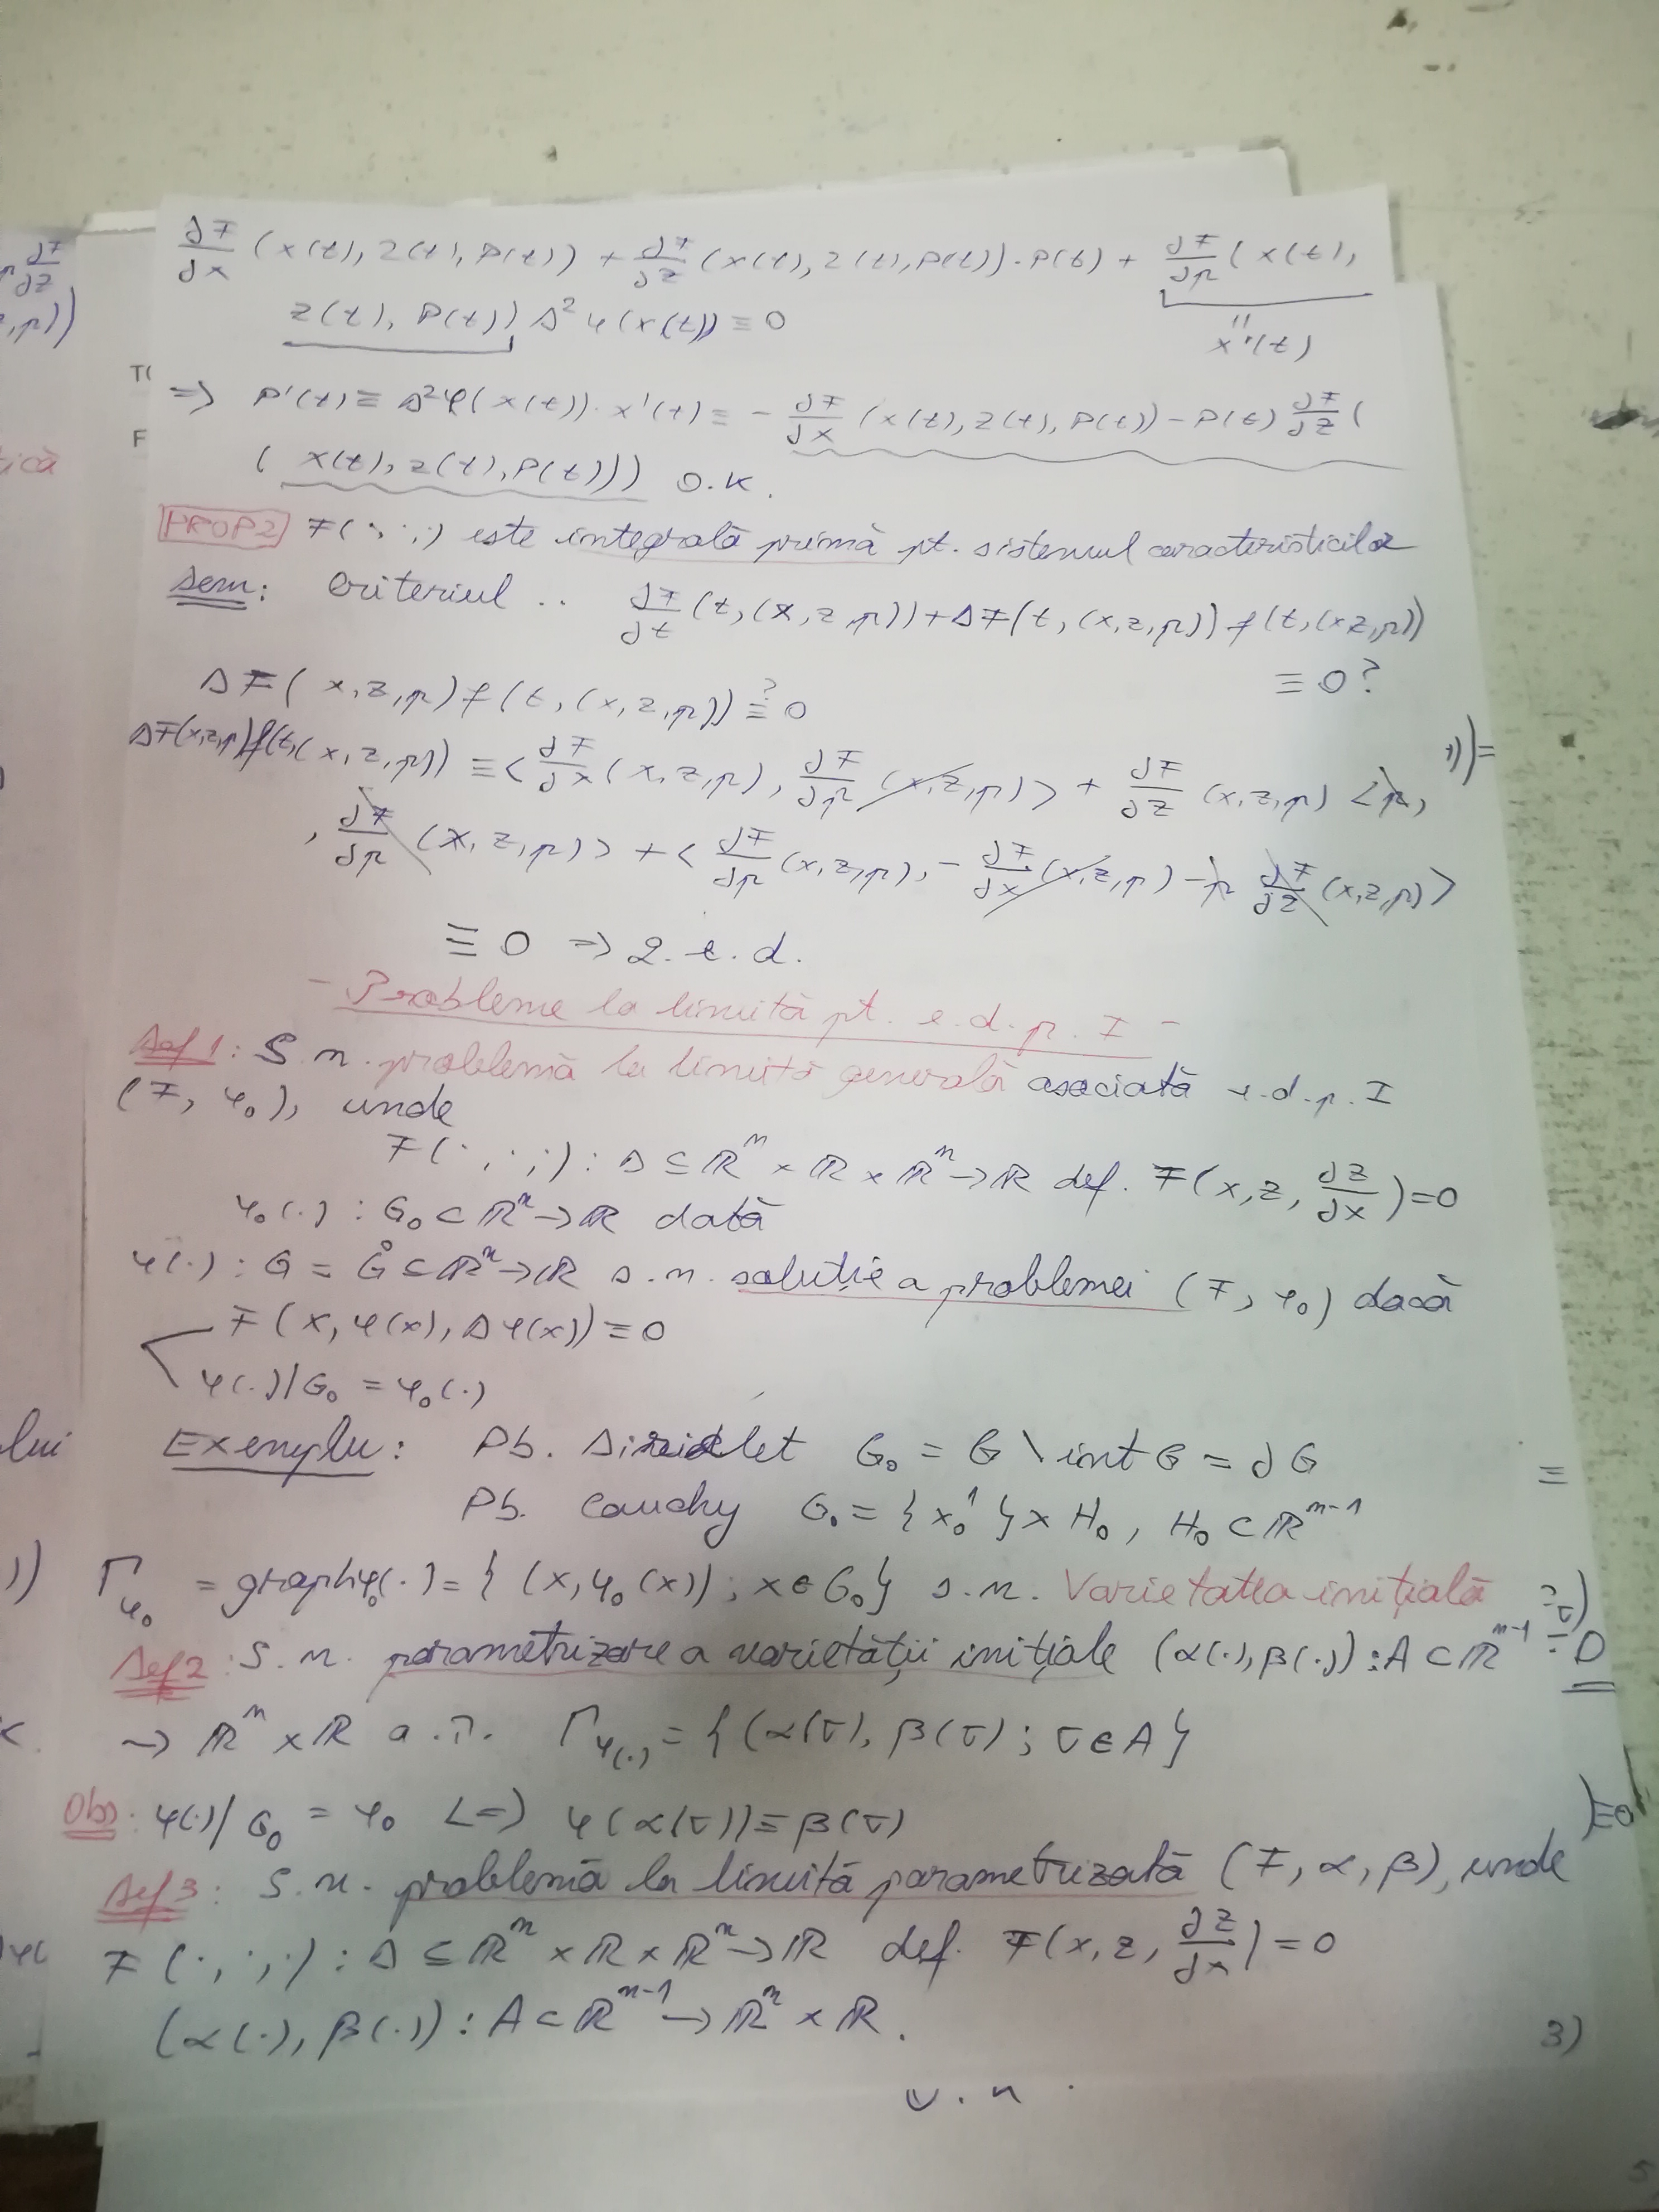 ∂F/∂x (x(t), z(t), p(t)) + ∂F/∂z (x(t), z(t), p(t)) · p(t) + ∂F/∂p (x(t),
z(t), p(t)) D²φ(x(t)) ≡ 0
" x'(t)
=> p'(t) ≡ D²φ(x(t)) · x'(t) ≡ - ∂F/∂x (x(t), z(t), p(t)) - p(t) ∂F/∂z (
( x(t), z(t), p(t))) O.K.
PROP2 F(·,·,·) este integrală primă pt. sistemul caracteristicilor
Dem: Criteriul .. ∂F/∂t (t, (x, z, p)) + DF(t, (x, z, p)) f(t, (x z, p))
≡ 0?
DF( x, z, p) f(t, (x, z, p)) ≡? 0
DF(x,z,p) f(t,( x, z, p)) ≡ < ∂F/∂x (x, z, p), ∂F/∂p (x, z, p) > + ∂F/∂z (x, z, p) < p,
, ∂F/∂p (x, z, p) > + < ∂F/∂p (x, z, p), - ∂F/∂x (x, z, p) - p ∂F/∂z (x, z, p) >
≡ 0 => q.e.d.
- Probleme la limită pt. e.d.p. I -
Def 1: S.n. problemă la limită generală asociată e.d.p. I
(F, φ₀), unde
F(·,·,·) : D ⊆ ℝⁿ × ℝ × ℝⁿ → ℝ def. F(x, z, ∂z/∂x) = 0
φ₀(·) : G₀ ⊂ ℝⁿ → ℝ dată
φ(·) : G = G̊ ⊆ ℝⁿ → ℝ s.n. soluție a problemei (F, φ₀) dacă
F(x, φ(x), Dφ(x)) ≡ 0
φ(·)/G₀ = φ₀(·)
Exemplu: Pb. Dirichlet G₀ = G \ int G = ∂G
Pb. Cauchy G₀ = { x₀¹ } × H₀, H₀ ⊂ ℝⁿ⁻¹
Γφ₀ = graph φ₀(·) = { (x, φ₀(x)) ; x ∈ G₀} s.n. Varietatea inițială
Def 2: S.n. parametrizare a varietății inițiale (α(·), β(·)) : A ⊂ ℝⁿ⁻¹
→ ℝⁿ × ℝ a.î. Γφ(·) = { (α(τ), β(τ) ; τ ∈ A }
Obs: φ(·)/G₀ = φ₀ <=> φ(α(τ)) ≡ β(τ)
Def 3: S.n. problemă la limită parametrizată (F, α, β), unde
F(·,·,·) : D ⊆ ℝⁿ × ℝ × ℝⁿ → ℝ def. F(x, z, ∂z/∂x) = 0
(α(·), β(·)) : A ⊂ ℝⁿ⁻¹ → ℝⁿ × ℝ.
3)